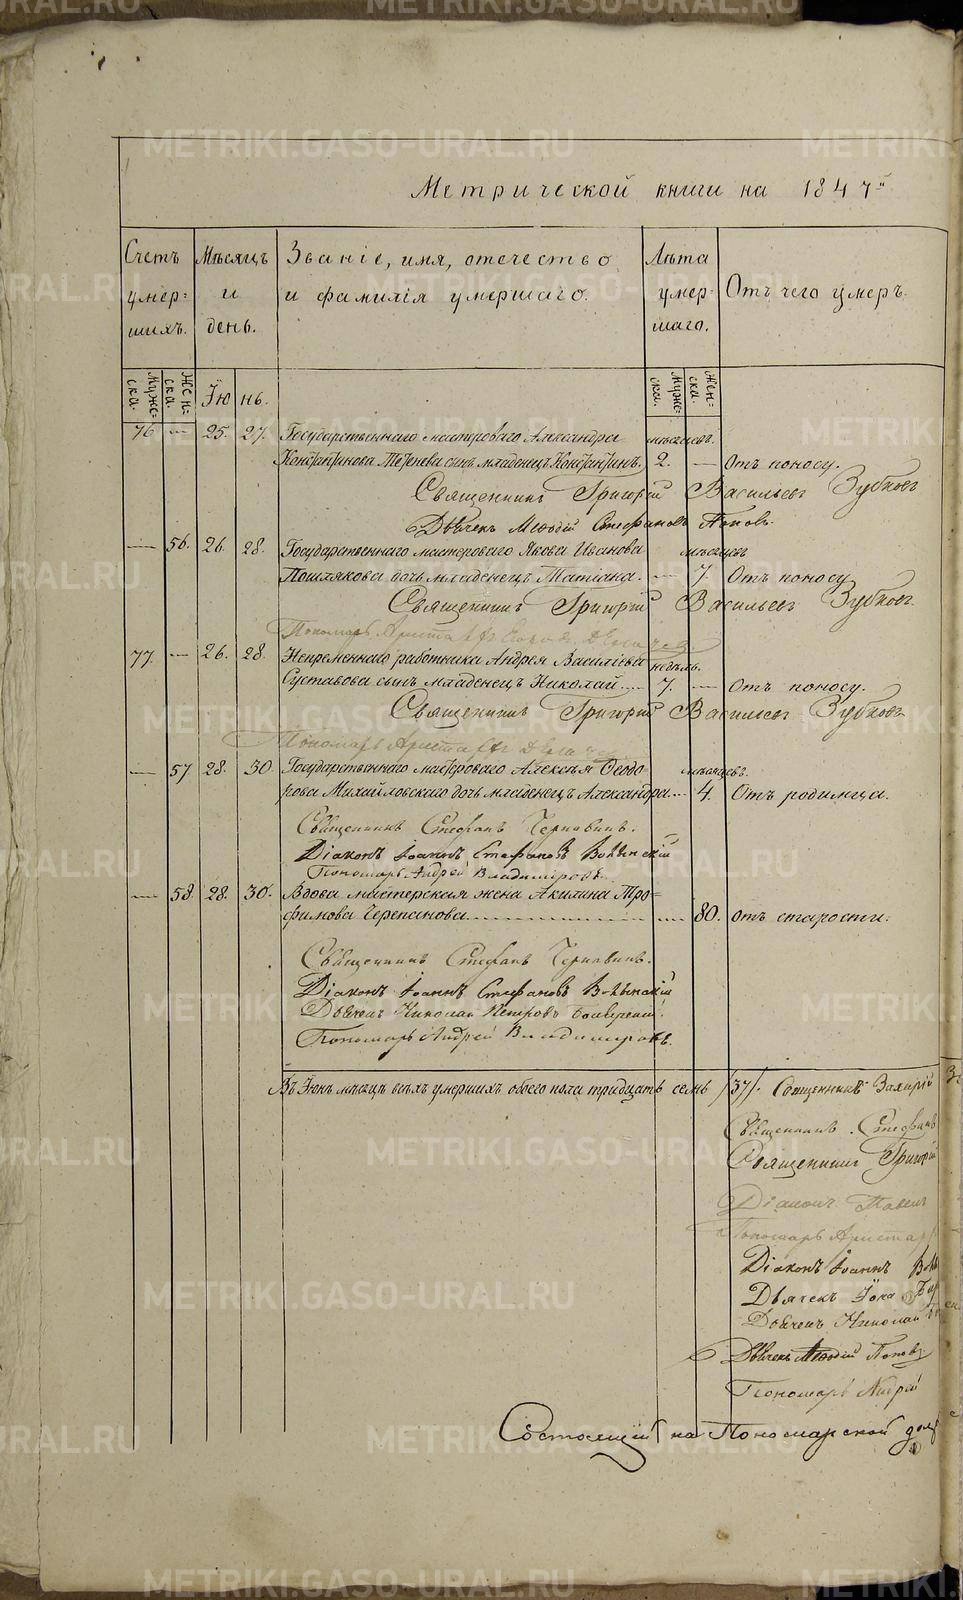 Метрической книги на 1847ӣ
Счетъ умер= шихъ.
Мѣсяцъ и день.
Званіе, имя, отечество и фамилія умершаго.
Лѣта умер= шаго.
Отъ чего умеръ.
Муже= ска. Жен= ска. Їю нь. Муже= ска. Жен= ска.
76 — 25. 27. Государственнаго мастероваго Александра мѣсяцовъ.
Константинова Тетенева сынъ младенецъ Константинъ. 2. — Отъ поносу.
Священникъ Григорій Васильевъ Зубковъ
Дьячекъ Меѳодій Стефановъ Поповъ.
— 56. 26. 28. Государственнаго мастероваго Якова Иванова мѣсяцевъ
Пошлякова дочь младенецъ Татіана. — 7. Отъ поносу
Священникъ Григорій Васильевъ Зубковъ.
Пономарь Аристархъ
77. — 26. 28. Непременнаго работника Андрея Василіева недѣль.
Суставова сынъ младенецъ Николай.... 7. — Отъ поносу.
Священникъ Григорій Васильевъ Зубковъ
Пономарь Аристархъ
— 57 28. 30. Государственнаго мастероваго Алексѣя Ѳеодо- мѣсяцевъ.
рова Михайловскаго дочь младенецъ Александра... 4. Отъ родимца.
Священникъ Стефанъ Чернавинъ.
Діаконъ Іоаннъ Стефановъ Волынскій
Пономарь Андрей Владиміровъ.
— 58. 28. 30. Вдова мастерская жена Акилина Тро=
фимова Черепанова.................. .... 80. отъ старости.
Священникъ Стефанъ Чернавинъ.
Діаконъ Іоаннъ Стефановъ Волынскій
Дьячекъ Николай Петровъ
Пономарь Андрей Владиміровъ.
Въ Іюнѣ мѣсяцѣ всѣхъ умершихъ обоего пола тридцать семь /37/. Священникъ Захарій
Священникъ Стефанъ
Священникъ Григорій
Діаконъ Павелъ
Пономарь Аристар
Діаконъ Іоаннъ
Дьячекъ Іона
Дьячекъ Николай
Дьячекъ Меѳодій Поповъ.
Пономарь Андрей
Состоящій на Пономарской дол